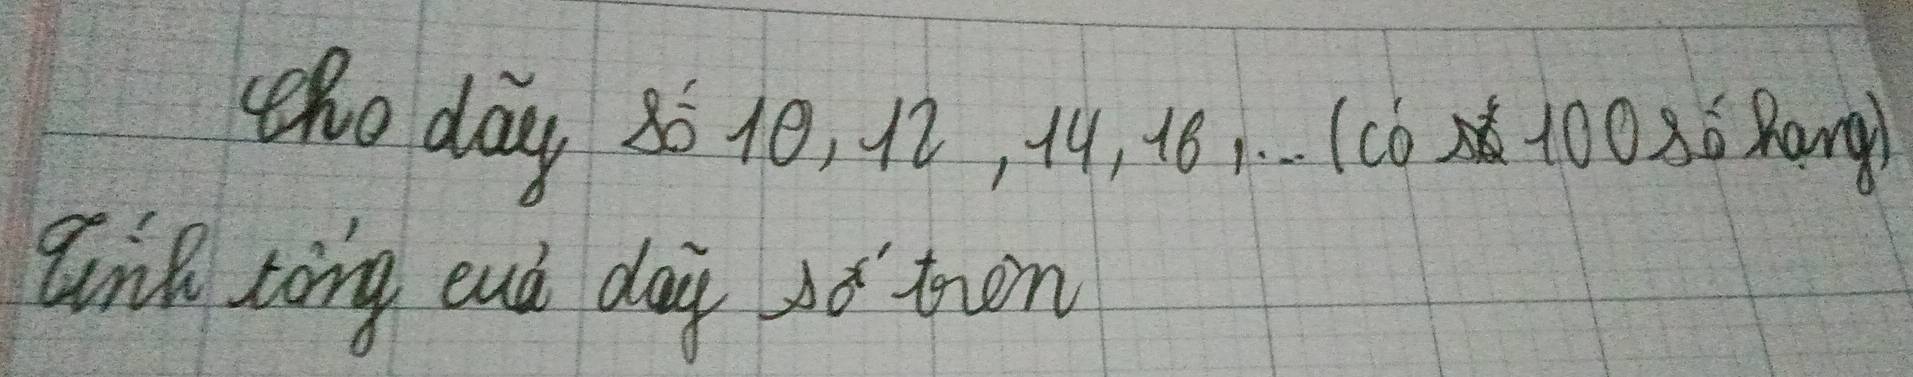 Cho dãy số 10, 12, 14, 16, ... (có 100 số hạng)
Tính tổng của dãy số trên